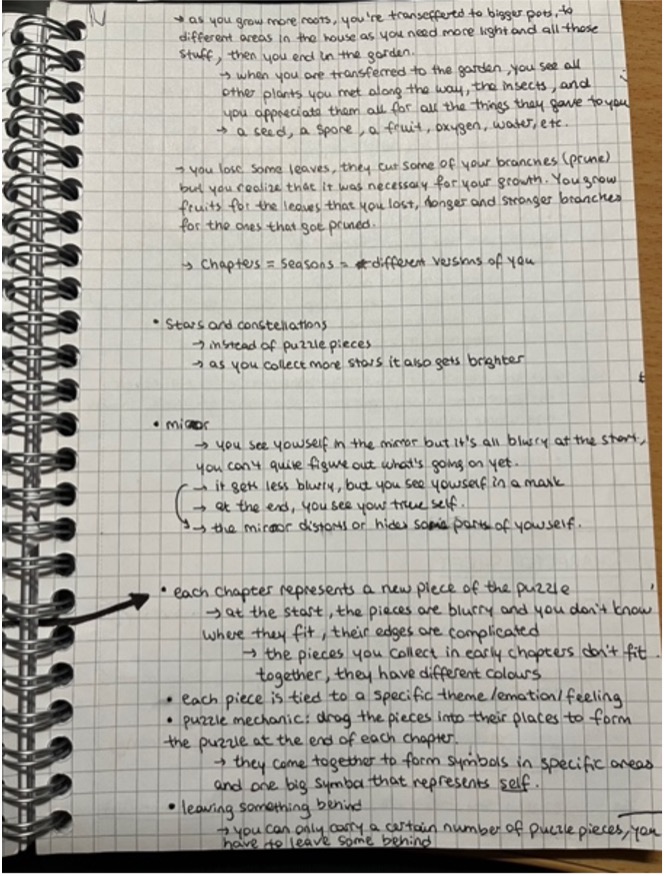 → as you grow more roots, you're transeffered to bigger pots, to
different areas in the house as you need more light and all those
stuff, then you end in the garden.
→ when you are transferred to the garden, you see all
other plants you met along the way, the insects, and
you appreciate them all for all the things they gave to you
→ a seed, a spore, a fruit, oxygen, water, etc.
→ you lose some leaves, they cut some of your branches (prune)
but you realize that it was necessary for your growth. You grow
fruits for the leaves that you lost, longer and stronger branches
for the ones that got pruned.
→ Chapters = seasons = different versions of you
• Stars and constellations
→ instead of puzzle pieces
→ as you collect more stars it also gets brighter
• mirror
→ you see yourself in the mirror but it's all blurry at the start,
you can't quite figure out what's going on yet.
→ it gets less blurry, but you see yourself in a mask
→ at the end, you see your true self.
→ the mirror distorts or hides some parts of yourself.
• each chapter represents a new piece of the puzzle
→ at the start, the pieces are blurry and you don't know
where they fit, their edges are complicated
→ the pieces you collect in early chapters don't fit
together, they have different colours
• each piece is tied to a specific theme/emotion/feeling
• puzzle mechanic: drag the pieces into their places to form
the puzzle at the end of each chapter.
→ they come together to form symbols in specific areas
and one big symbol that represents self.
• leaving something behind
→ you can only carry a certain number of puzzle pieces, you
have to leave some behind